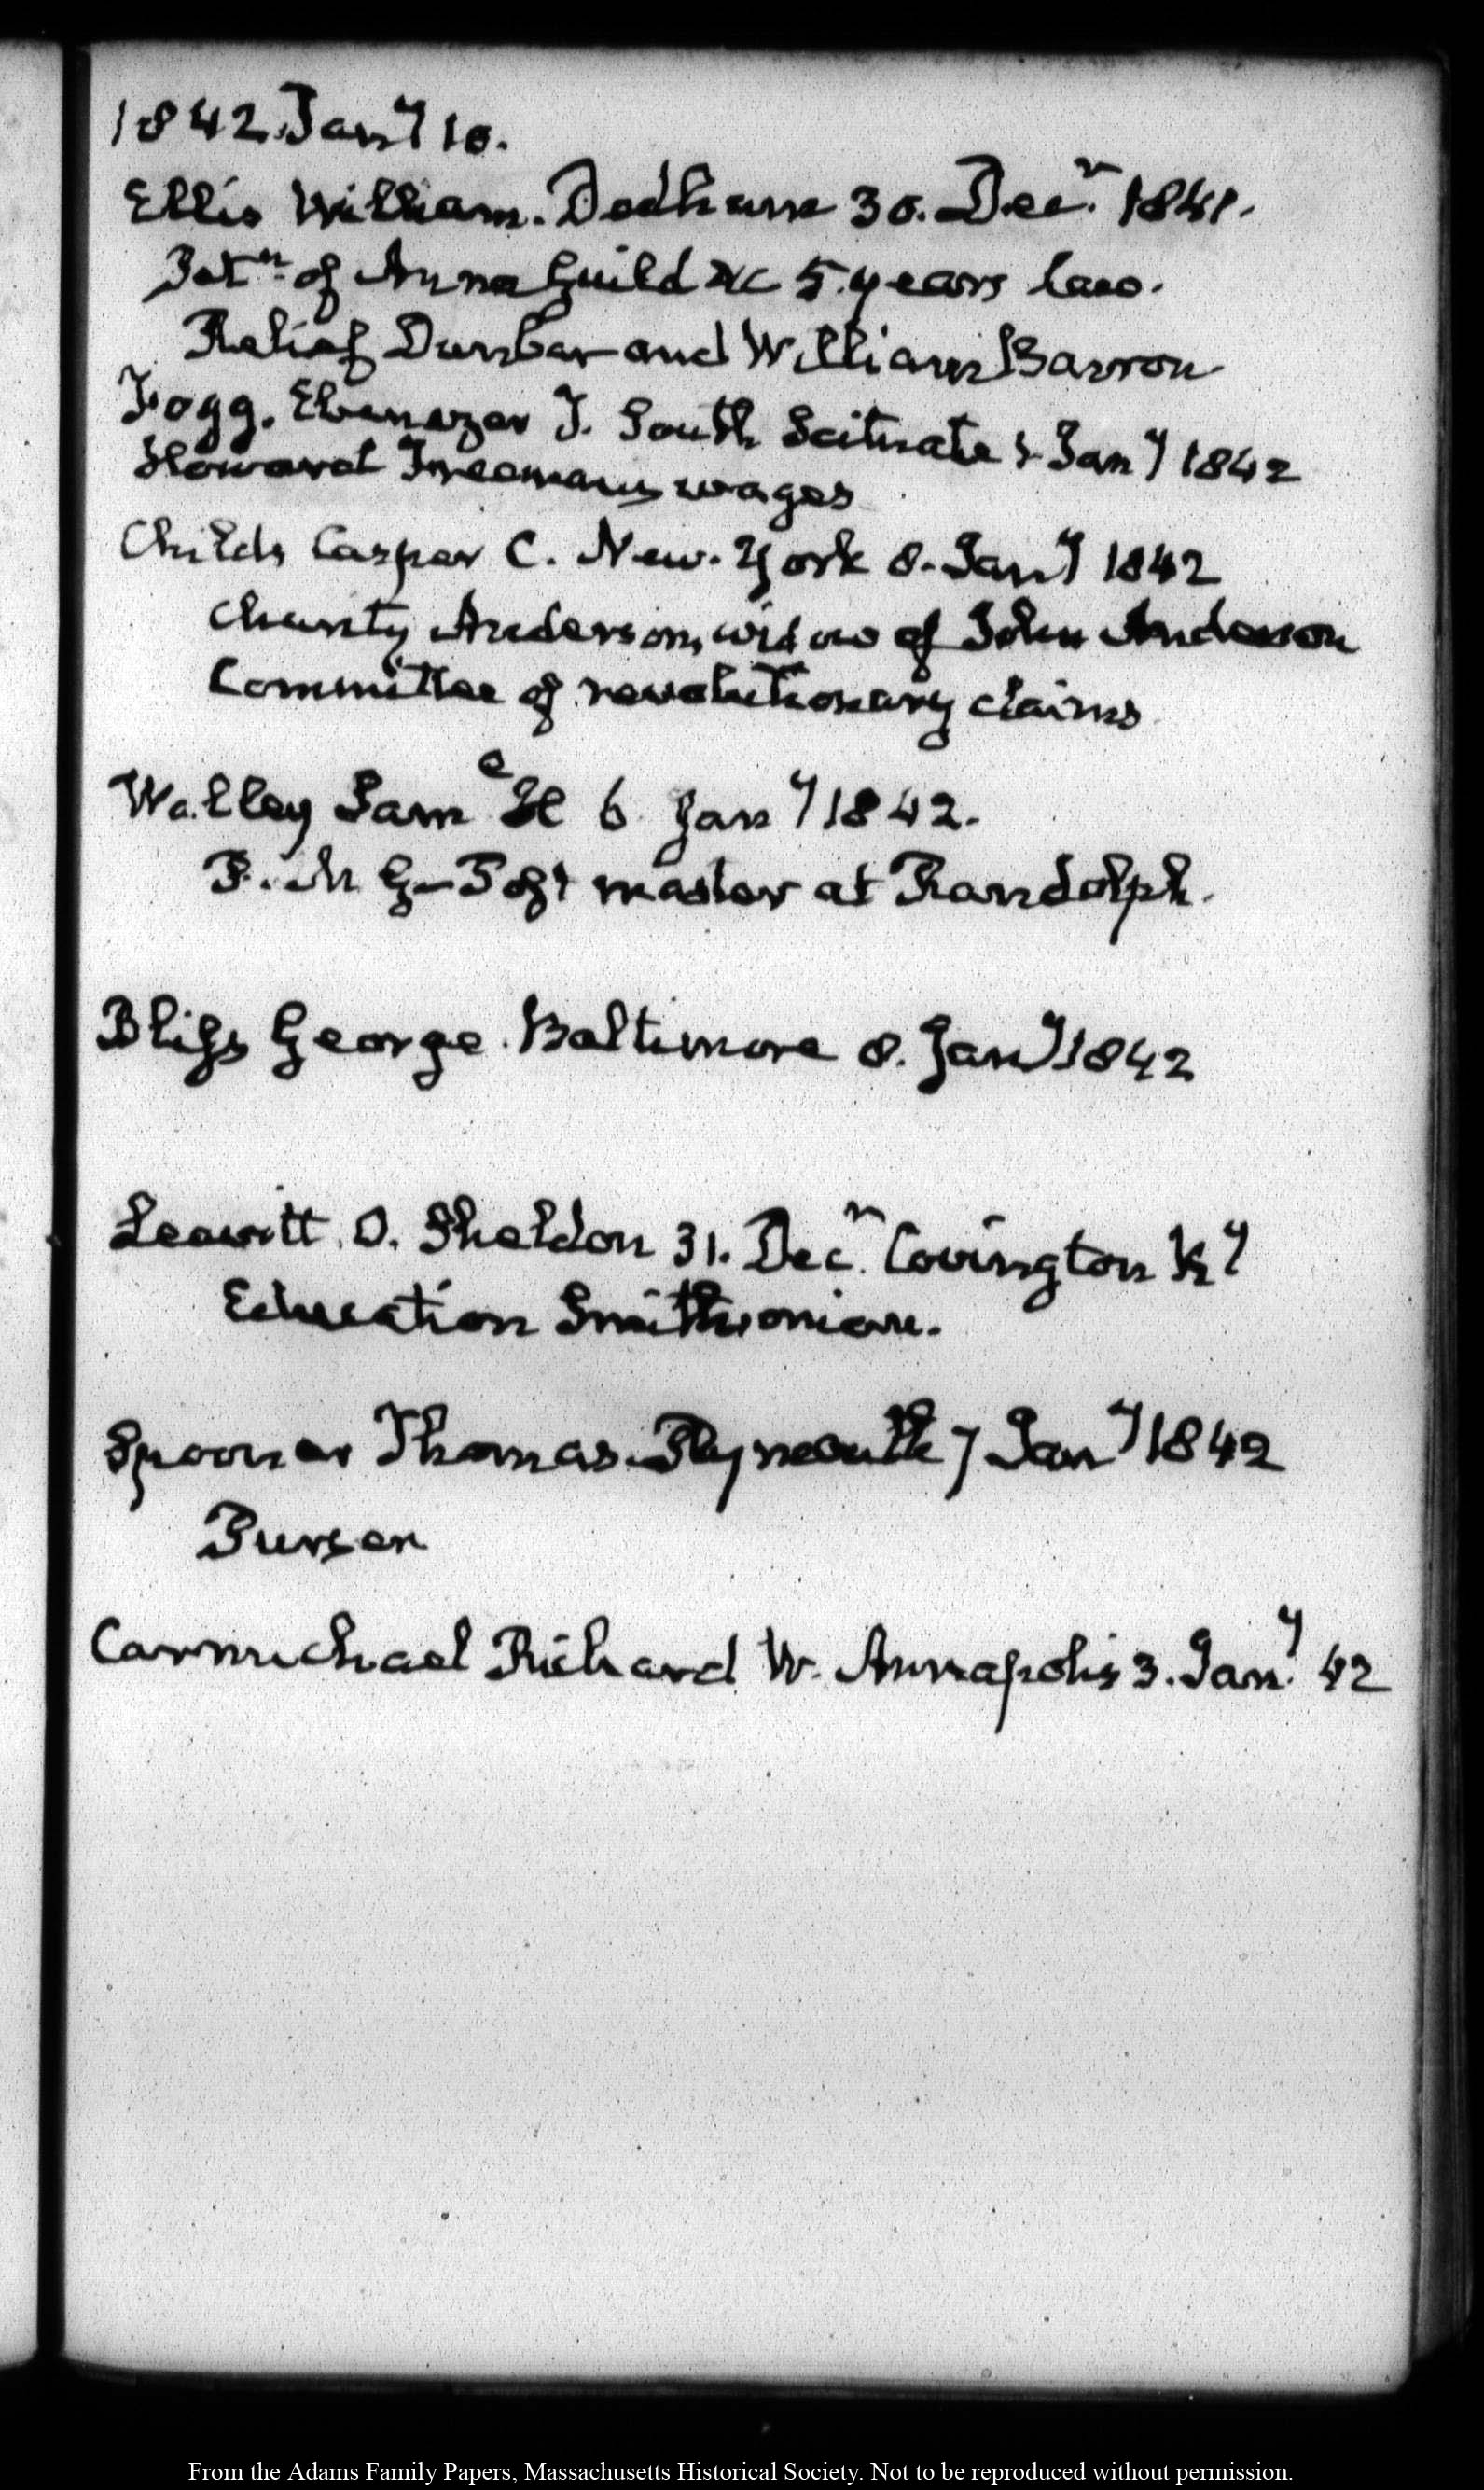 1842. Jany 10.
Ellis William. Dedham 30. Decr. 1841.
Petn. of Anna Guild &c 5. years law.
Relief Dunbar and William Barron
Fogg. Ebenezer T. South Scituate Jany 1842
Howard Freemans wages
Childs Casper C. New-York 8. Jany 1842
Charity Anderson, widow of John Anderson
Committee of revolutionary claims
Walley Saml H 6 Jany 1842.
P. M G— Post master at Randolph.
Bliss George. Baltimore 8. Jany 1842
Leavitt. O. Sheldon 31. Decr. Covington Ky
Education Smithsonian.
Spooner Thomas. Plymouth 7 Jany 1842
Purser
Carmichael Richard W. Annapolis 3. Jany. 42
From the Adams Family Papers, Massachusetts Historical Society. Not to be reproduced without permission.